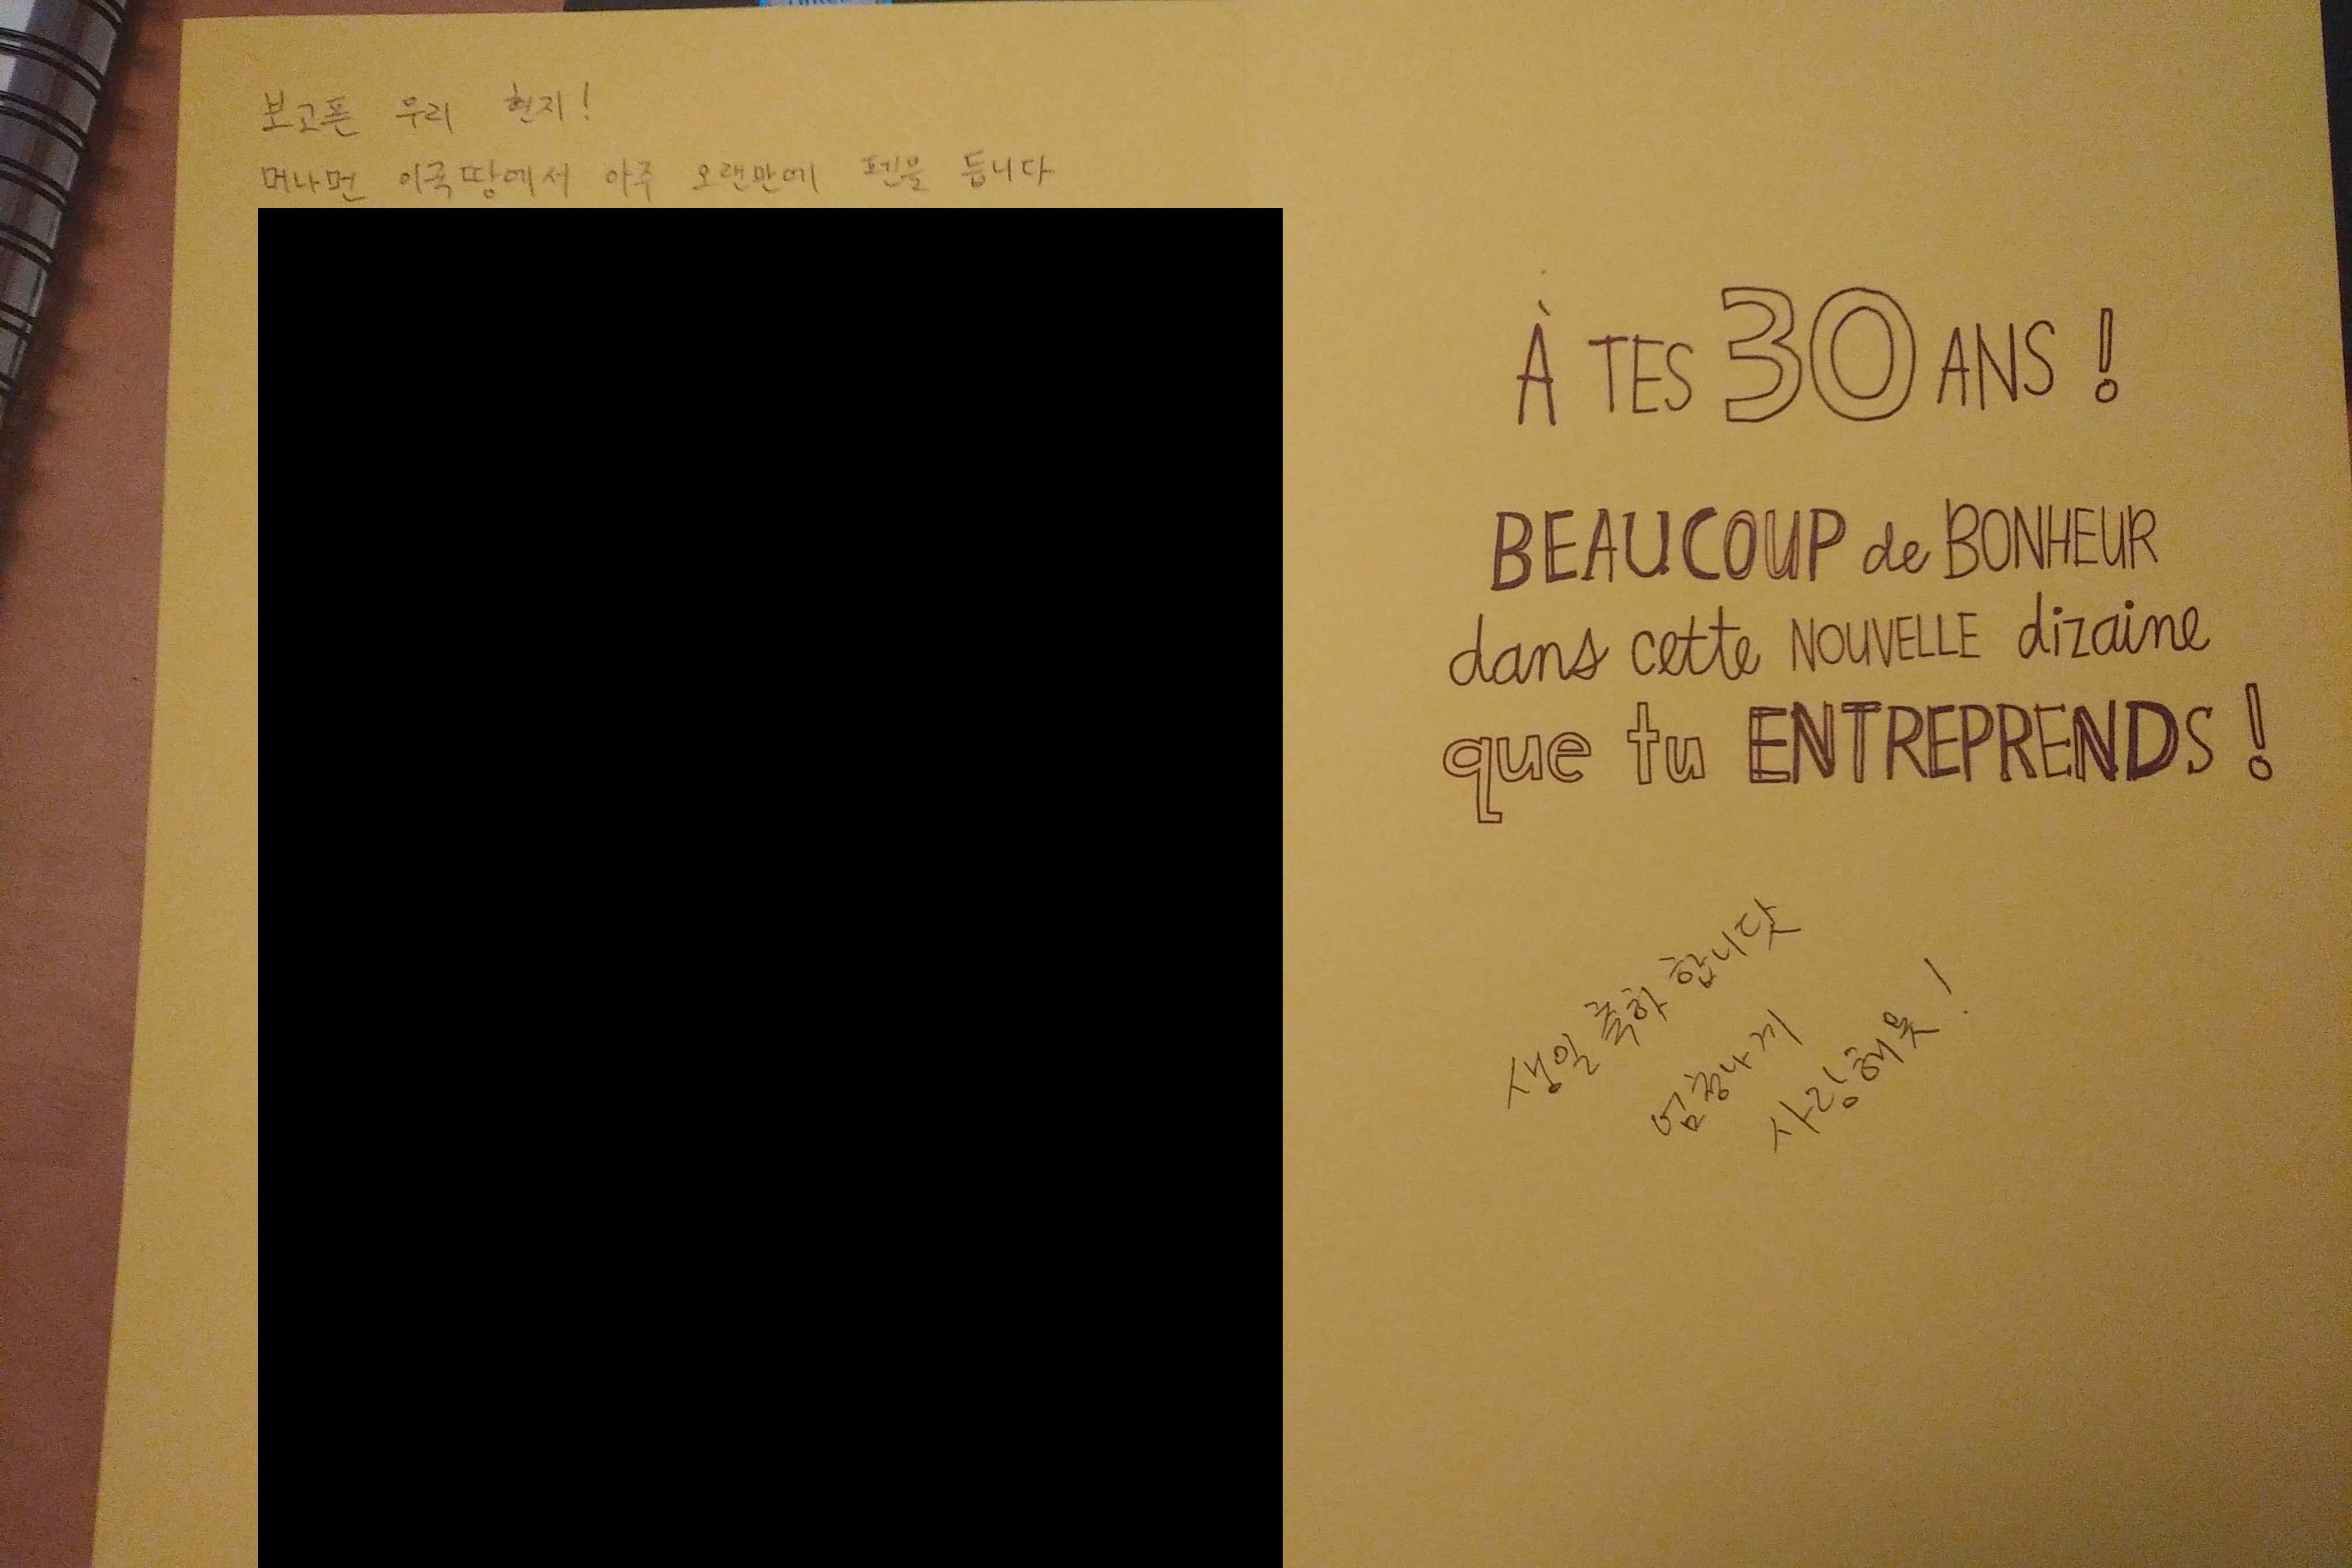 보고픈 우리 현지!
머나먼 이국땅에서 아주 오랜만에 펜을 듭니다
À TES 30 ANS !
BEAUCOUP de BONHEUR
dans cette NOUVELLE dizaine
que tu ENTREPRENDS !
생일 축하 합니닷
엄청나게
사랑해욧!